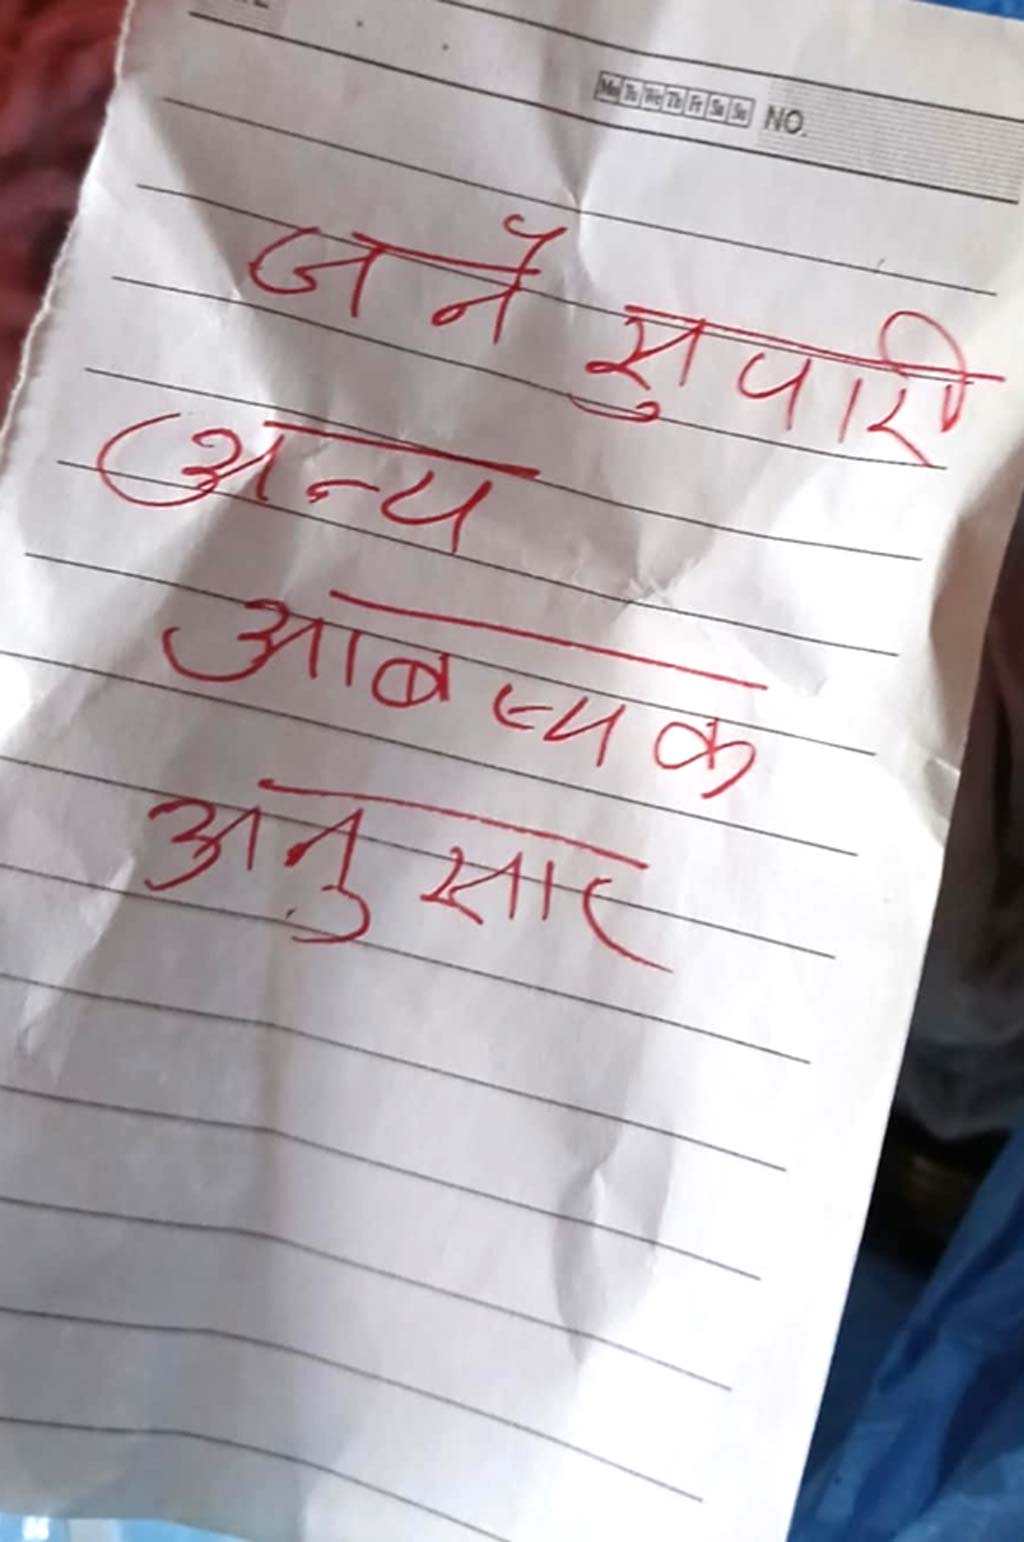 Mo Tu We Th Fr Sa Su NO.
जनै सुपारी
अन्य
आवश्यक
अनुसार